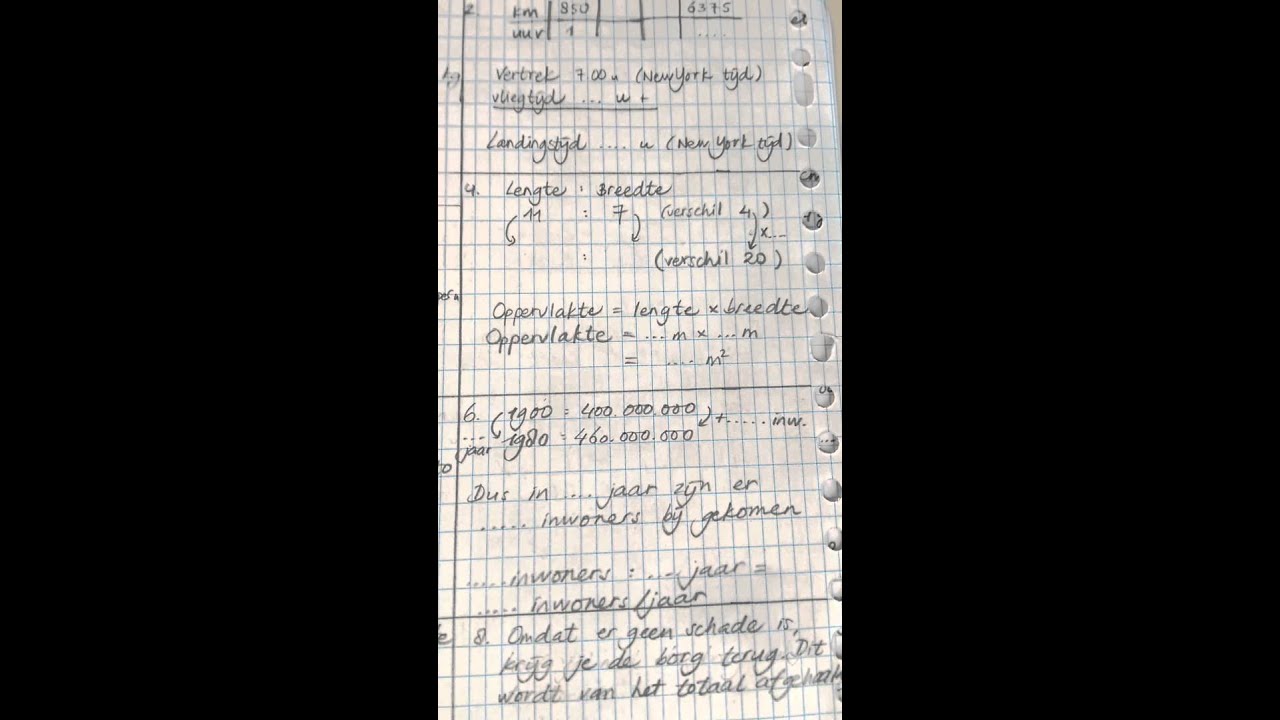 2. km | 850 | | | 6375
uur | 1 | | | ....
Vertrek 7.00 u (New York tijd)
vliegtijd ... u +
Landingstijd .... u (New York tijd)
4. Lengte : Breedte
11 : 7 (verschil 4)
x...
: (verschil 20)
Oppervlakte = lengte x breedte
Oppervlakte = ... m x ... m
= .... m²
6. 1900 = 400.000.000 + ..... inw.
.... jaar 1980 = 460.000.000
Dus in ... jaar zijn er
..... inwoners bij gekomen
..... inwoners : ... jaar =
..... inwoners/jaar
8. Omdat er geen schade is,
krijg je de borg terug. Dit
wordt van het totaal